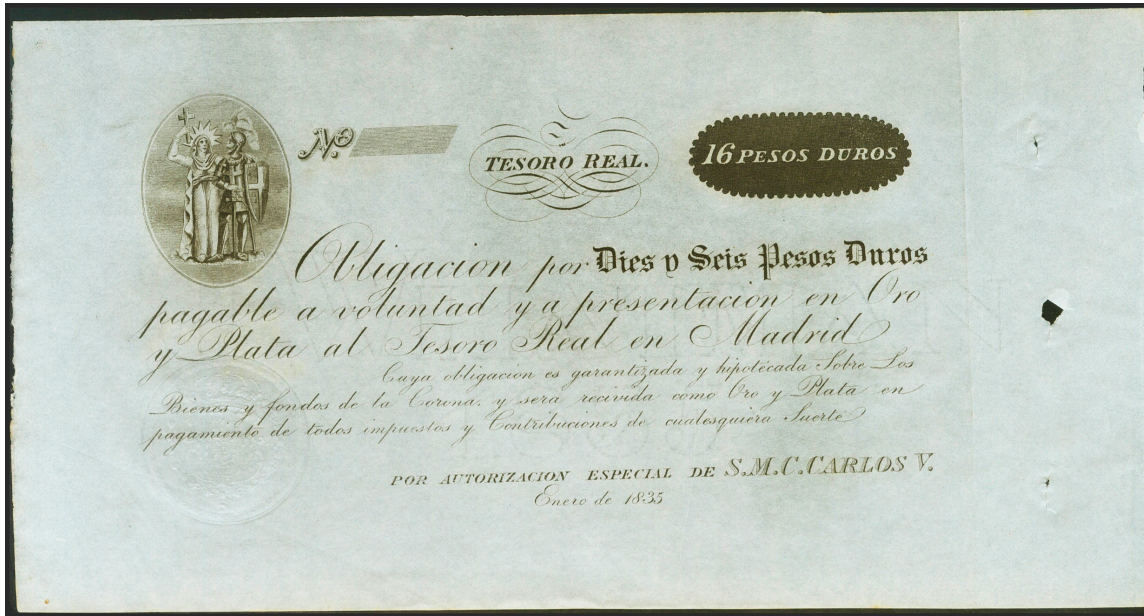 No.
TESORO REAL.
16 PESOS DUROS
Obligacion por Dies y Seis Pesos Duros
pagable a voluntad y a presentacion en Oro
y Plata al Tesoro Real en Madrid
Cuya obligacion es garantizada y hipotecada Sobre Los
Bienes y fondos de la Corona. y será recivida como Oro y Plata en
pagamiento de todos impuestos y Contribuciones de cualesquiera Suerte
POR AUTORIZACION ESPECIAL DE S.M.C. CARLOS V.
Enero de 1835